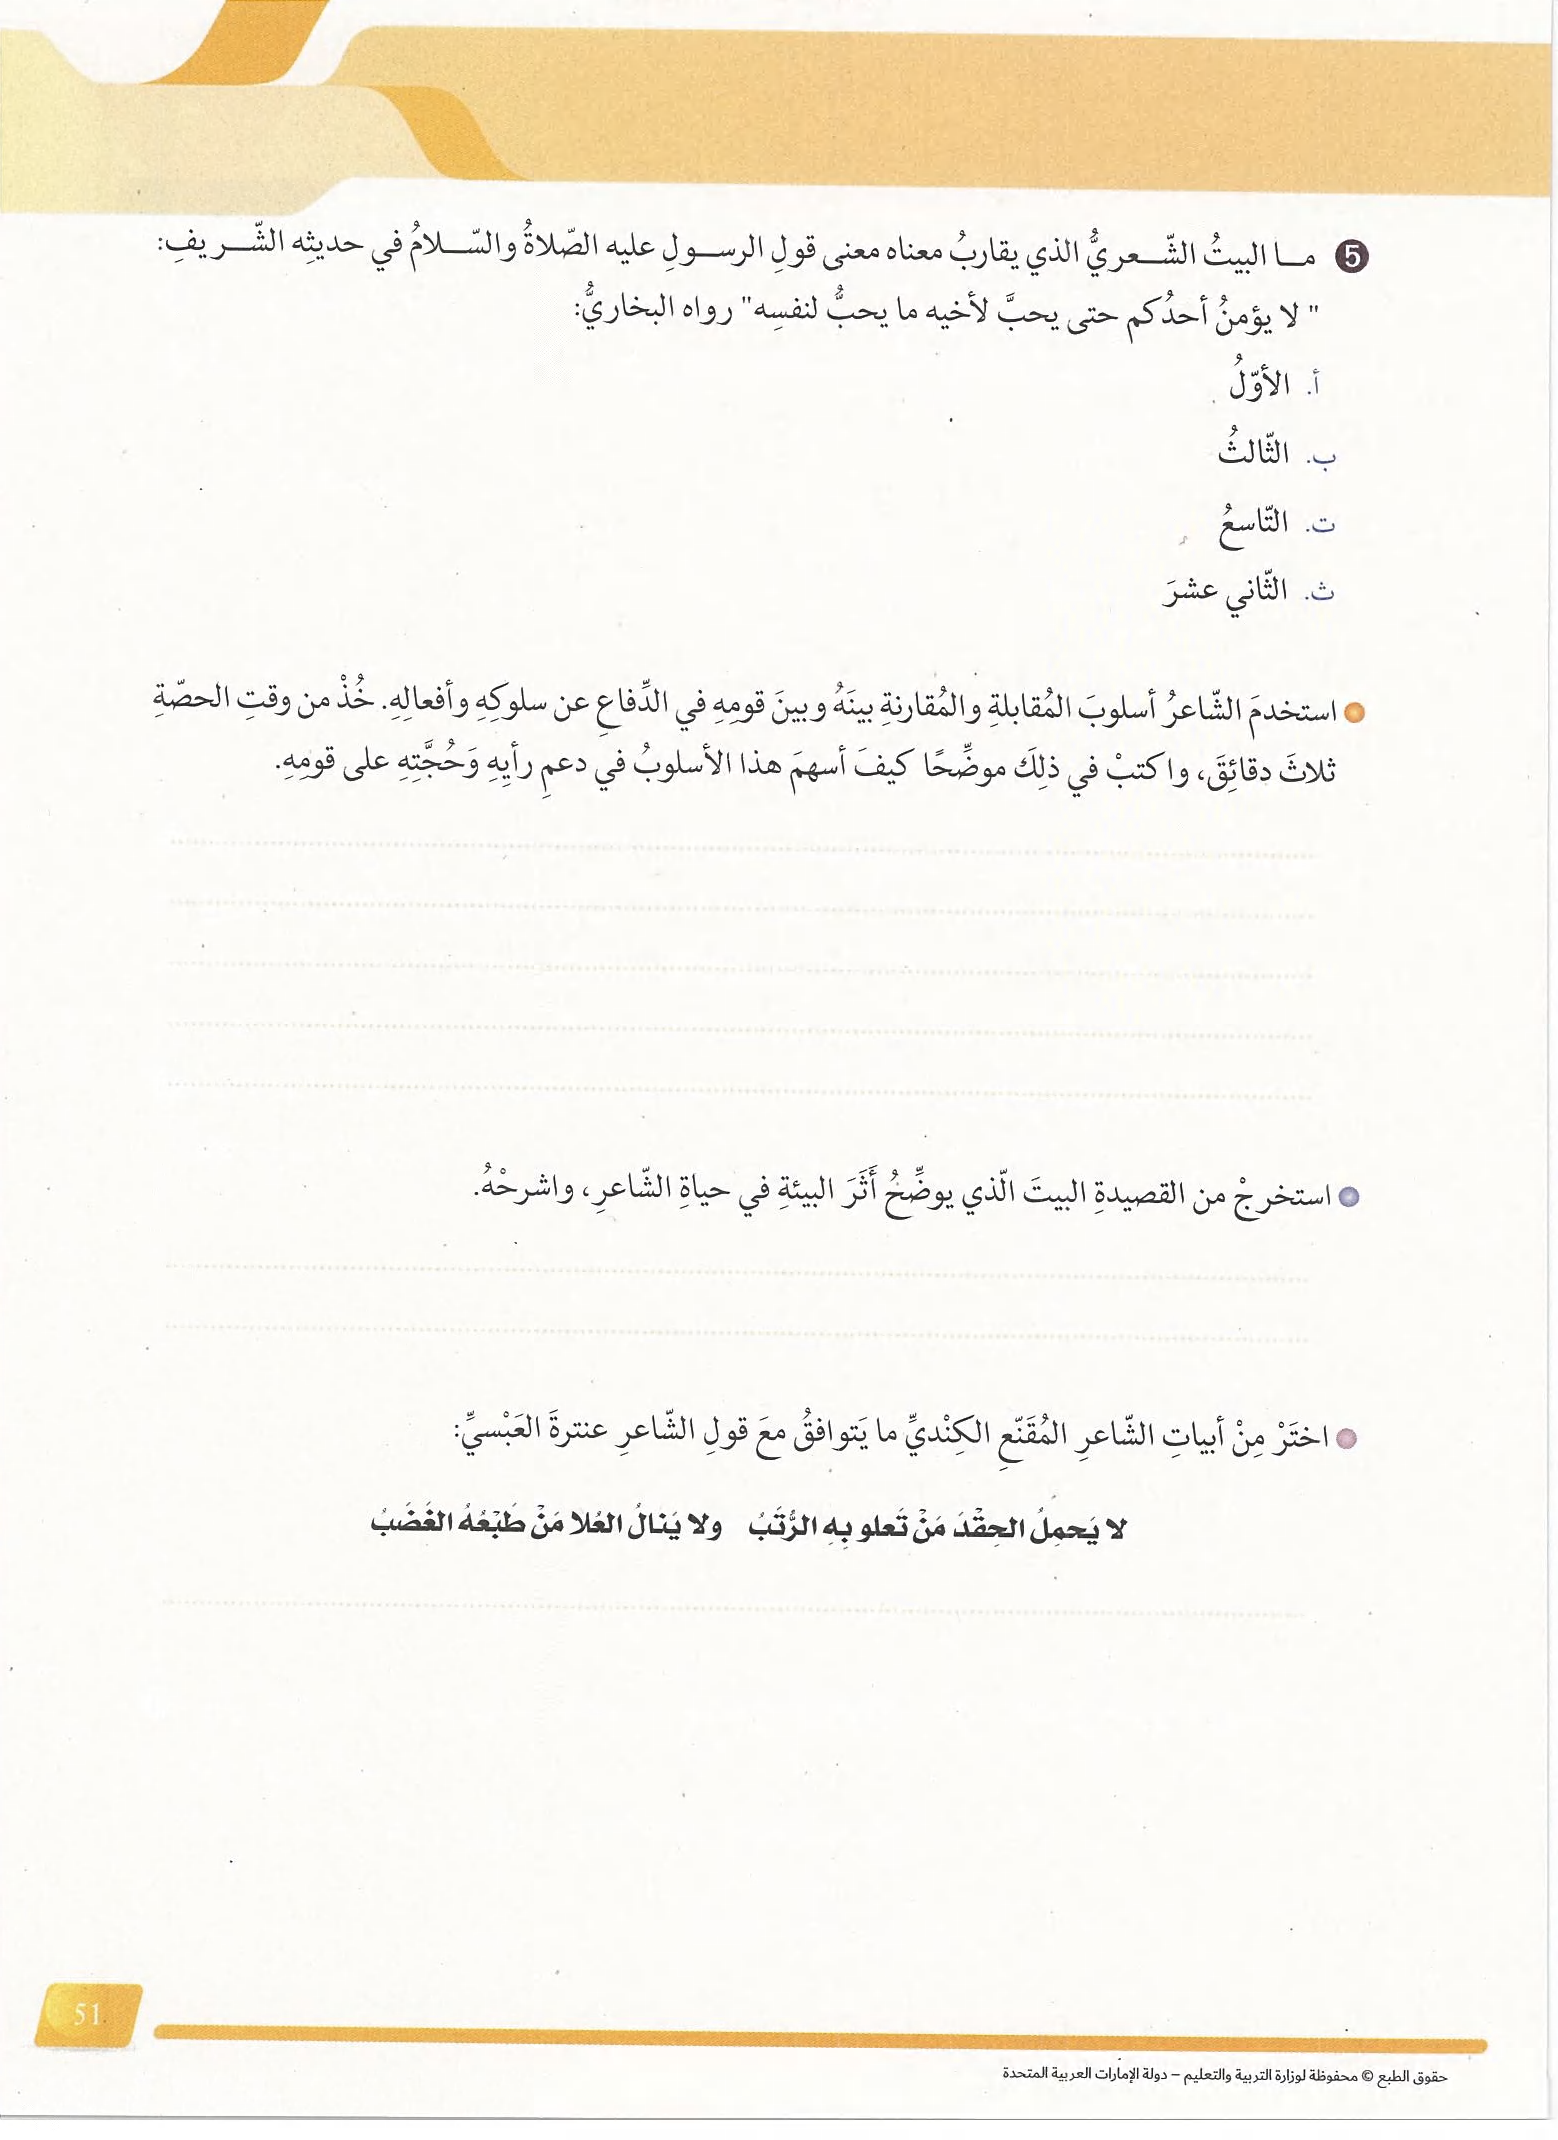 5 ما البيتُ الشّعريُّ الذي يقاربُ معناه معنى قولِ الرسولِ عليه الصّلاةُ والسّلامُ في حديثِه الشّريفِ:
" لا يؤمنُ أحدُكم حتى يحبَّ لأخيه ما يحبُّ لنفسِه" رواه البخاريُّ:
أ. الأوّلُ
ب. الثّالثُ
ت. التّاسعُ
ث. الثّاني عشرَ
استخدمَ الشّاعرُ أسلوبَ المُقابلةِ والمُقارنةِ بينَهُ وبينَ قومِهِ في الدِّفاعِ عن سلوكِهِ وأفعالِهِ. خُذْ من وقتِ الحصّةِ
ثلاثَ دقائِقَ، واكتبْ في ذلِكَ موضِّحًا كيفَ أسهمَ هذا الأسلوبُ في دعمِ رأيِهِ وَحُجَّتِهِ على قومِهِ.
استخرجْ من القصيدةِ البيتَ الّذي يوضِّحُ أَثَرَ البيئةِ في حياةِ الشّاعرِ، واشرحْهُ.
اختَرْ مِنْ أبياتِ الشّاعرِ المُقَنّعِ الكِنْديِّ ما يَتوافقُ معَ قولِ الشّاعرِ عنترةَ العَبْسيِّ:
لا يَحمِلُ الحِقْدَ مَنْ تَعلو بِهِ الرُّتَبُ ولا يَنالُ العُلا مَنْ طَبْعُهُ الغَضَبُ
51
حقوق الطبع © محفوظة لوزارة التربية والتعليم – دولة الإمارات العربية المتحدة